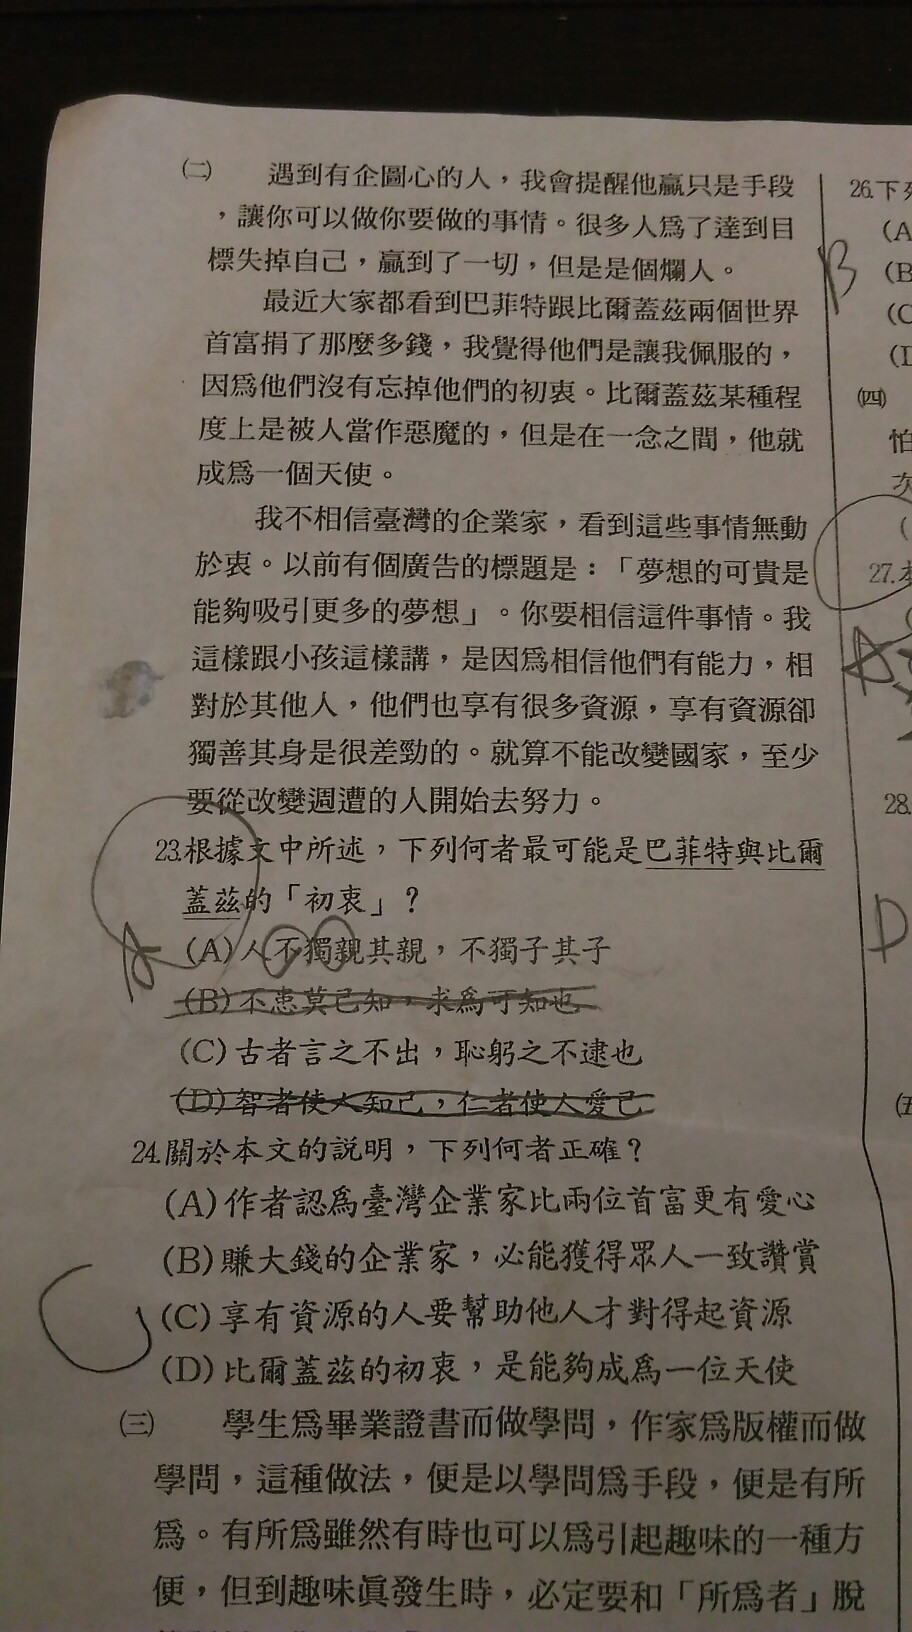 ㈡　遇到有企圖心的人，我會提醒他贏只是手段
，讓你可以做你要做的事情。很多人爲了達到目
標失掉自己，贏到了一切，但是是個爛人。
最近大家都看到巴菲特跟比爾蓋茲兩個世界
首富捐了那麼多錢，我覺得他們是讓我佩服的，
因爲他們沒有忘掉他們的初衷。比爾蓋茲某種程
度上是被人當作惡魔的，但是在一念之間，他就
成爲一個天使。
我不相信臺灣的企業家，看到這些事情無動
於衷。以前有個廣告的標題是：「夢想的可貴是
能夠吸引更多的夢想」。你要相信這件事情。我
這樣跟小孩這樣講，是因爲相信他們有能力，相
對於其他人，他們也享有很多資源，享有資源卻
獨善其身是很差勁的。就算不能改變國家，至少
要從改變週遭的人開始去努力。
23.根據文中所述，下列何者最可能是巴菲特與比爾
蓋茲的「初衷」？
(A)人不獨親其親，不獨子其子
(B)不患莫己知，求爲可知也
(C)古者言之不出，恥躬之不逮也
(D)智者使人知己，仁者使人愛己
24.關於本文的說明，下列何者正確？
(A)作者認爲臺灣企業家比兩位首富更有愛心
(B)賺大錢的企業家，必能獲得眾人一致讚賞
(C)享有資源的人要幫助他人才對得起資源
(D)比爾蓋茲的初衷，是能夠成爲一位天使
㈢　學生爲畢業證書而做學問，作家爲版權而做
學問，這種做法，便是以學問爲手段，便是有所
爲。有所爲雖然有時也可以爲引起趣味的一種方
便，但到趣味眞發生時，必定要和「所爲者」脫
26.下列
(A
B
(B
(C
(D
㈣
怕
次
(
27.本
A
28.
D
㈤